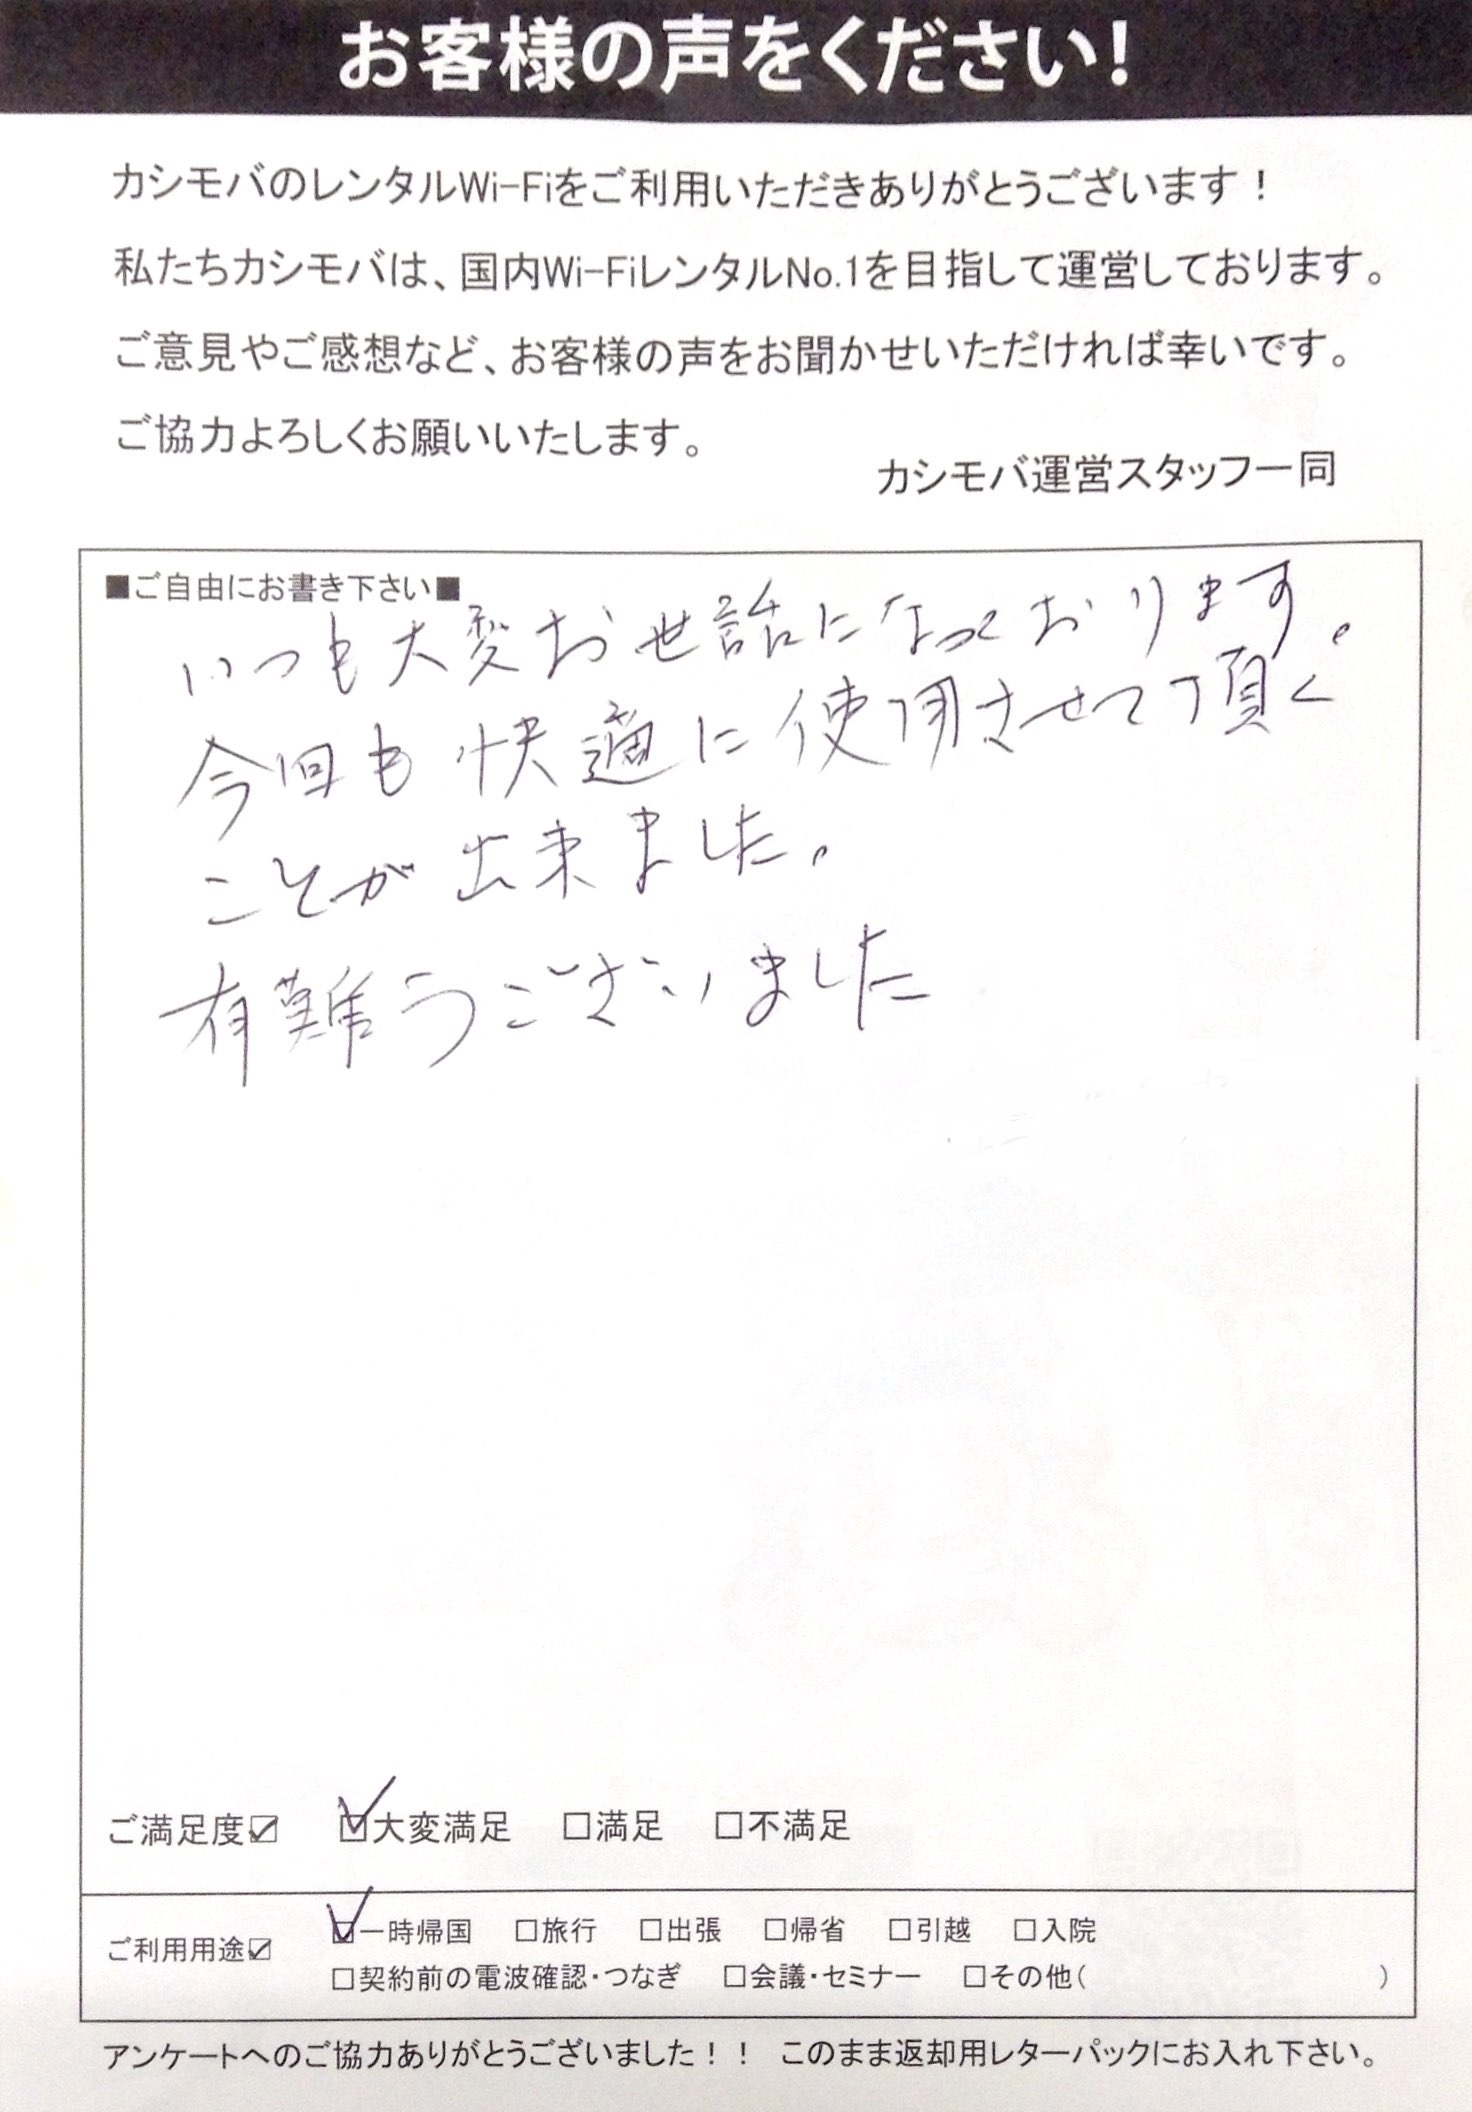 お客様の声をください!
カシモバのレンタルWi-Fiをご利用いただきありがとうございます！
私たちカシモバは、国内Wi-FiレンタルNo.1を目指して運営しております。
ご意見やご感想など、お客様の声をお聞かせいただければ幸いです。
ご協力よろしくお願いいたします。
カシモバ運営スタッフ一同
■ご自由にお書き下さい■
いつも大変お世話になっております。
今回も快適に使用させて頂く
ことが出来ました。
有難うございました
ご満足度☑ ☑大変満足 □満足 □不満足
ご利用用途☑ ☑一時帰国 □旅行 □出張 □帰省 □引越 □入院
□契約前の電波確認・つなぎ □会議・セミナー □その他( )
アンケートへのご協力ありがとうございました！！ このまま返却用レターパックにお入れ下さい。